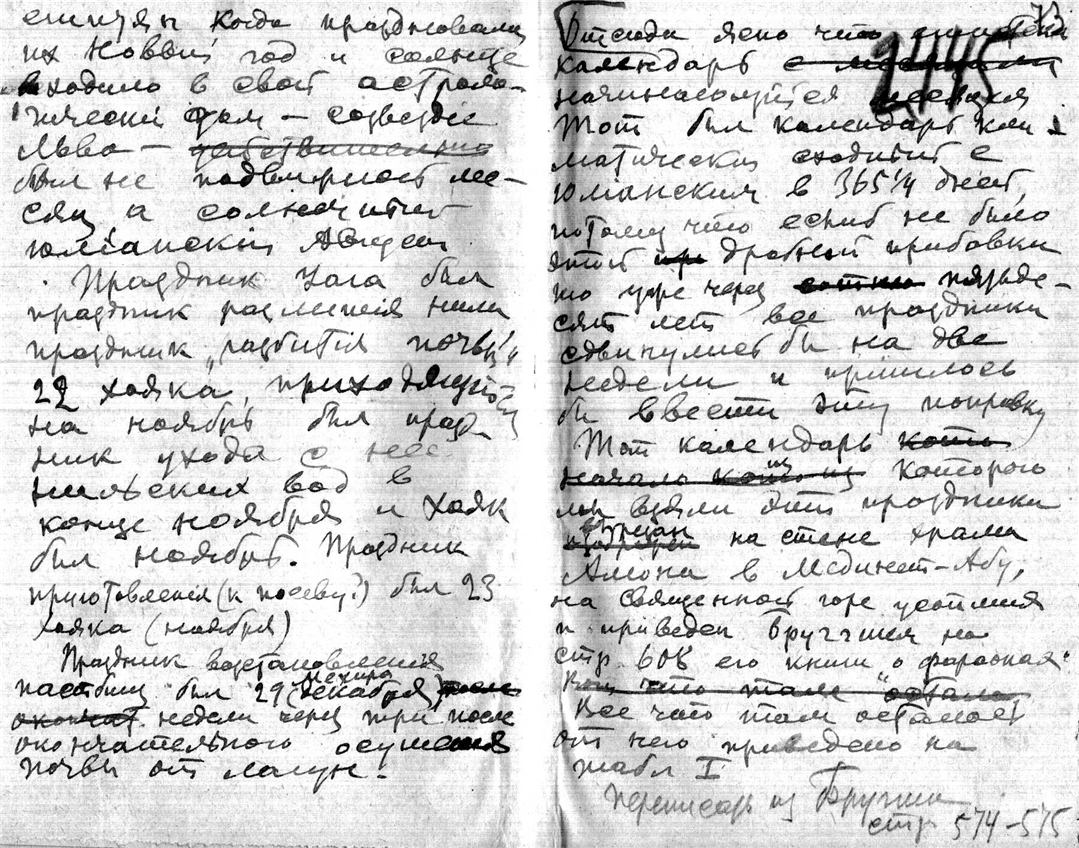 египтяне когда праздновали
их новый год и солнце
входило в свой астроло-
гический дом — созвездіе
Льва — действительно
был не подвижност ме-
сяц а солнечный
юліанскій Август
Праздник Уага был
праздник разлитія нила
праздник „разбитія почвы"
22 хояка, приходящуюся
на ноябрь был празд
ник ухода с нее
нильских вод в
конце ноября и Хояк
был ноябрь. Праздник
приготовленія (к посеву?) был 23
Хояка (ноября)
Праздник возстановленія
пастбищ был 29 (Мехира декабря) после
окончат. недели через три после
окончательного осушенія
почвы от лагун.
73
2445
Отсюда ясно что египетск
календарь с месяцами
начинающийся
Тот был календарь кли
матическій сходный с
юліанским в 365 1/4 дней,
потому что еслиб не было
этой пр дробной прибавки
то уже через сотню пятьде-
сят лет все праздники
сдвинулись бы на две
недели и пришлось
бы ввести эту поправку
Тот календарь кото
начало которого
мы взяли эти праздники
на стене храма
Амона в Мединет-Абу,
на священной горе
и приведен Бругшем на
стр 608 его книги о фараонах.
Все что там остало
Все что там остается
от него приведено на
табл I
Переписать из Бругша
стр 574-575